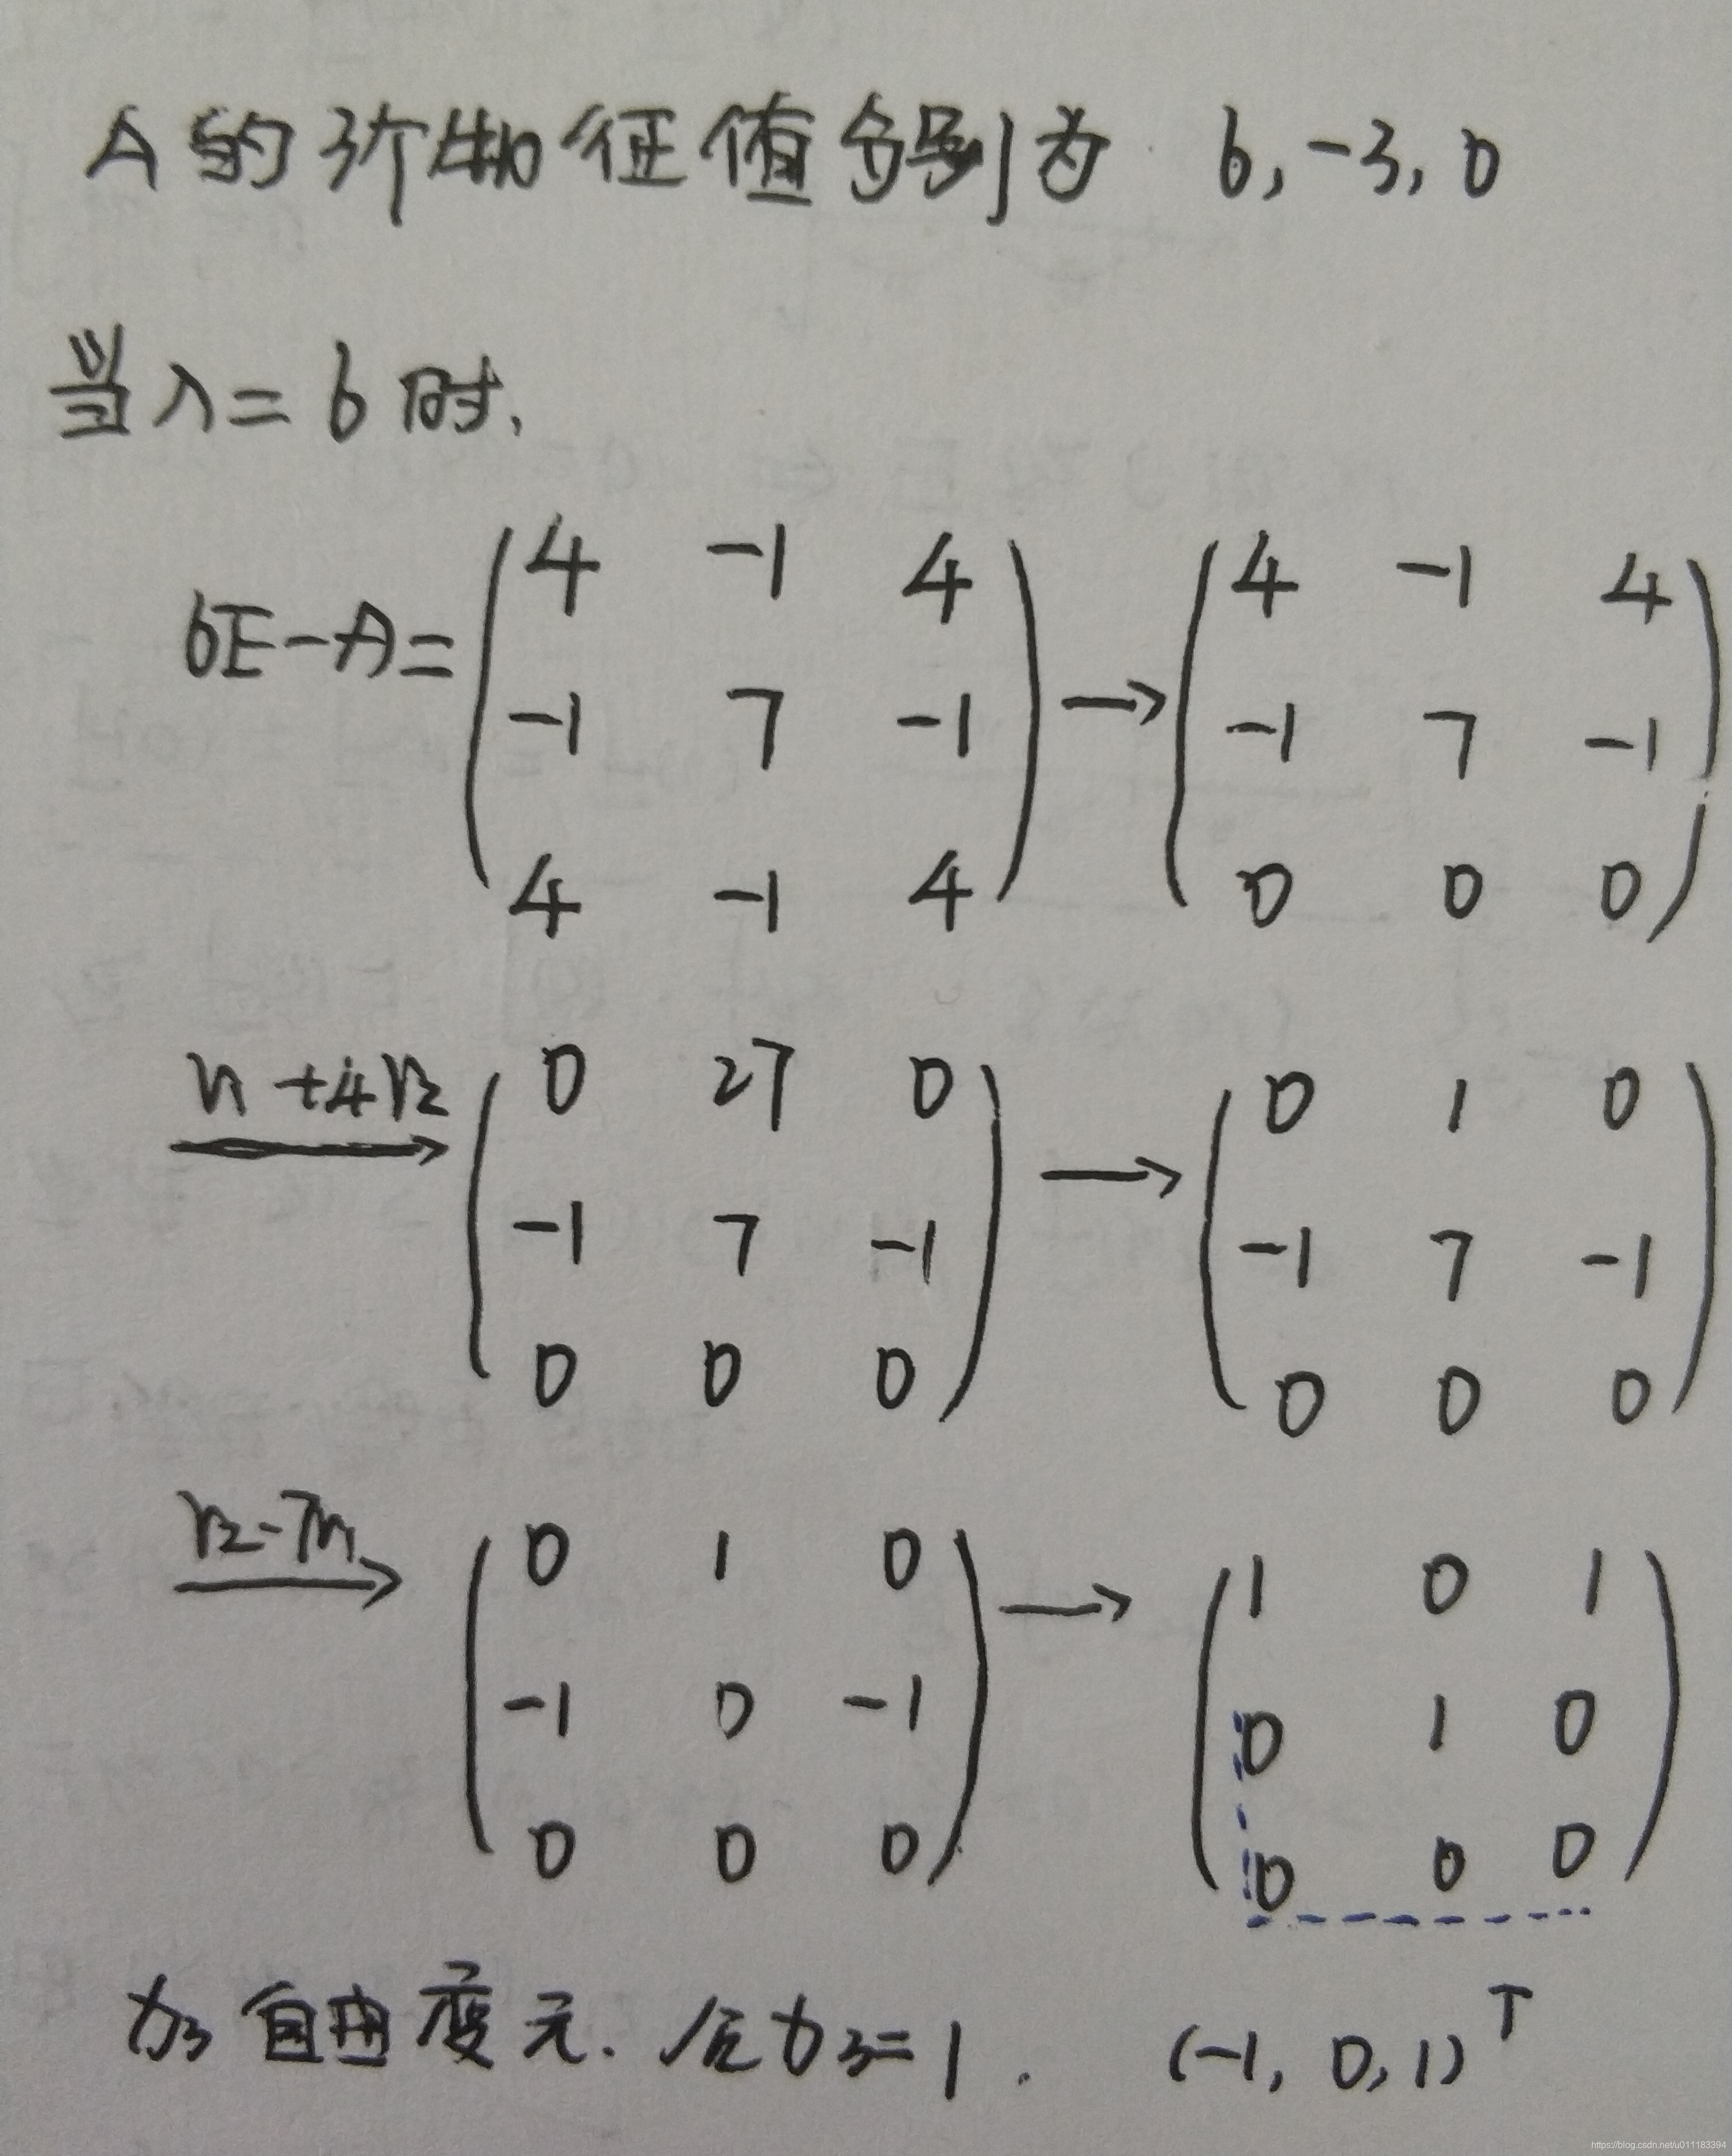 A的3个特征值分别为 6, -3, 0
当λ=6时,
6E-A= (4 -1 4) → (4 -1 4)
(-1 7 -1) (-1 7 -1)
(4 -1 4) (0 0 0)
r1+4r2 → (0 27 0) → (0 1 0)
(-1 7 -1) (-1 7 -1)
(0 0 0) (0 0 0)
r2-7r1 → (0 1 0) → (1 0 1)
(-1 0 -1) (0 1 0)
(0 0 0) (0 0 0)
x3自由变元. 令x3=1. (-1, 0, 1)ᵀ
https://blog.csdn.net/u011183394